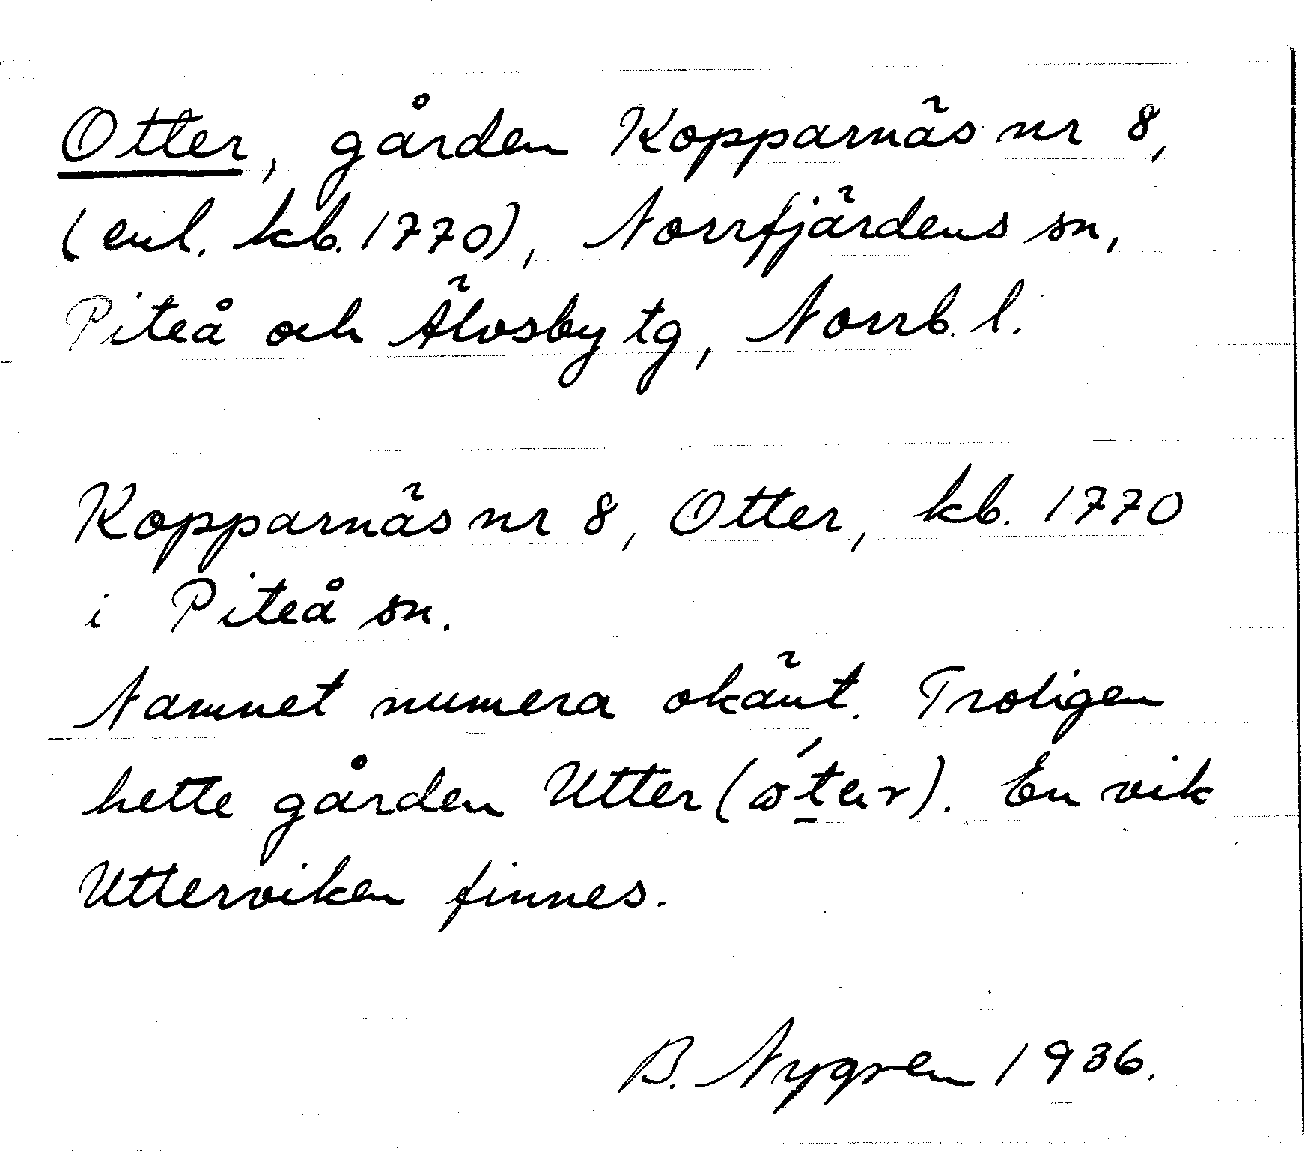 Otter, gården Kopparnäs nr 8,
(enl. kb. 1770), Norrfjärdens sn,
Piteå och Älvsby tg, Norrb. l.
Kopparnäs nr 8, Otter, kb. 1770
i Piteå sn.
Namnet numera okänt. Troligen
hette gården Utter ( ). En vik
Utterviken finnes.
B. Nygren 1936.